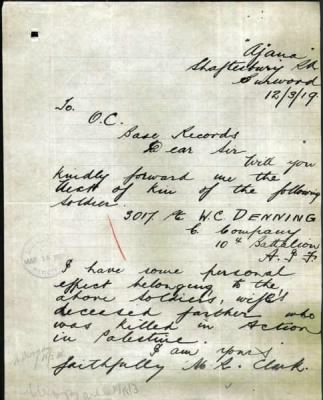 "Ajana"
Shaftesbury Rd
Burwood
12/3/19
To.
O.C.
Base Records
Dear Sir
Will you
kindly forward me the
next of kin of the following
soldier.
3017 Pte W.C. DENNING
C Company
10th Battalion
A.I.F.
I have some personal
effect belonging to the
above soldiers, wife's
deceased farther who
was killed in Action
in Palestine.
I am yours
faithfully M. G. Clark.